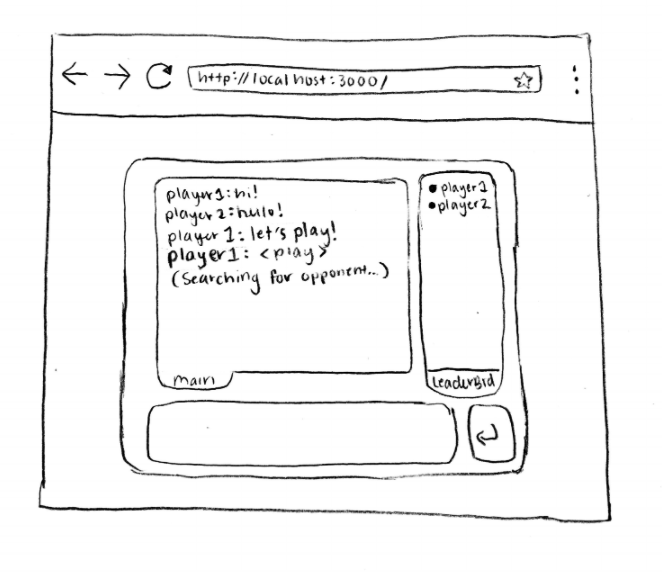 http://localhost:3000/
player1: hi!
player2: hello!
player1: let's play!
player1: <play>
(Searching for opponent...)
main
player1
player2
LeaderBrd